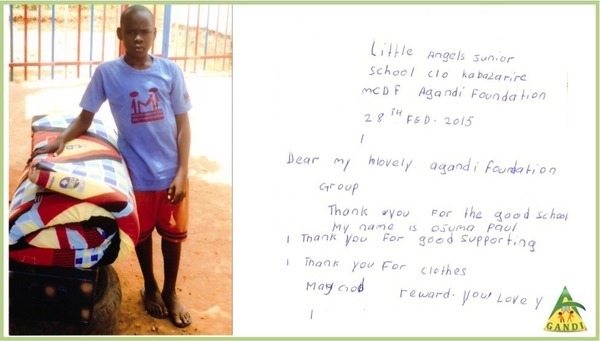 Little Angels Junior
School C/o Kabazarire
MCDF Agandi Foundation
28TH FEB. 2015
Dear my hlovely agandi foundation
Group
Thank you For the good school
My name is Ojuma Paul
I Thank you For good supporting
I Thank you For clothes
May God reward. you Lovely
GANDI